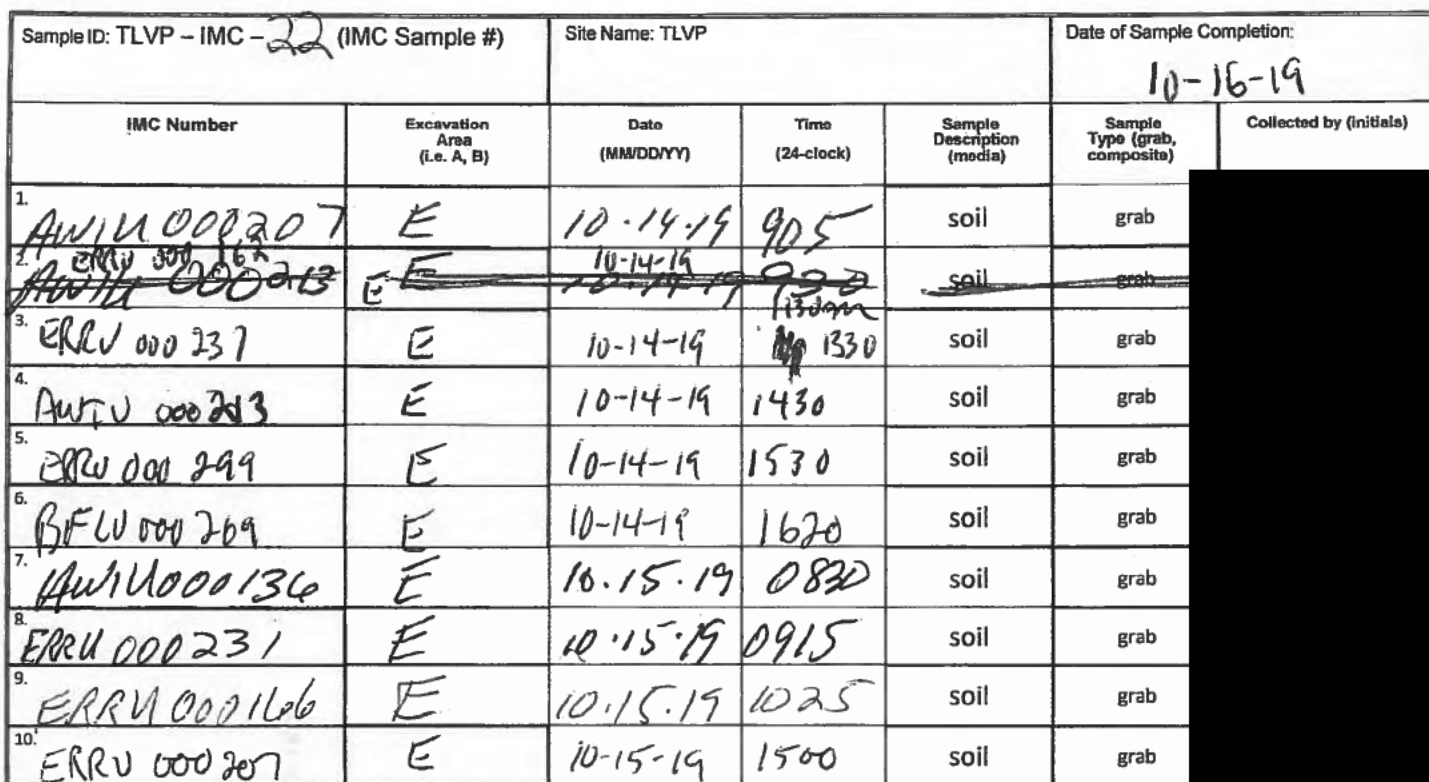 Sample ID: TLVP – IMC – 22 (IMC Sample #) Site Name: TLVP Date of Sample Completion:
10-16-19
IMC Number Excavation Area (i.e. A, B) Date (MM/DD/YY) Time (24-clock) Sample Description (media) Sample Type (grab, composite) Collected by (initials)
1. AWIU 000207 E 10.14.19 905 soil grab
ERRU 000 162 E 10-14-19 1130
2. AWIU 000213 E 10.14.19 930 soil grab
3. ERRU 000 237 E 10-14-19 1330 soil grab
4. AWIU 000213 E 10-14-19 1430 soil grab
5. ERRU 000 299 E 10-14-19 1530 soil grab
6. BFLU 000 269 E 10-14-19 1620 soil grab
7. AWIU000136 E 10.15.19 0830 soil grab
8. ERRU 000231 E 10.15.19 0915 soil grab
9. ERRU 000166 E 10.15.19 1025 soil grab
10. ERRU 000207 E 10-15-19 1500 soil grab